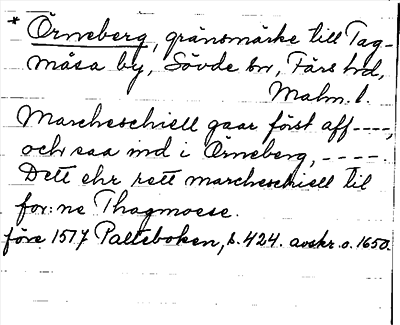 * Örneberg, gränsmärke till Tag-
måsa by, Sövde sn, Färs hd,
Malm. l.
Marcheschiell gaar först aff ----,
och saa ind i Örneberg, ----.
Dett ehr rett marcheschiell til
for:ne Thagmoese.
före 1517 Palteboken, s. 424. avskr. o. 1650.